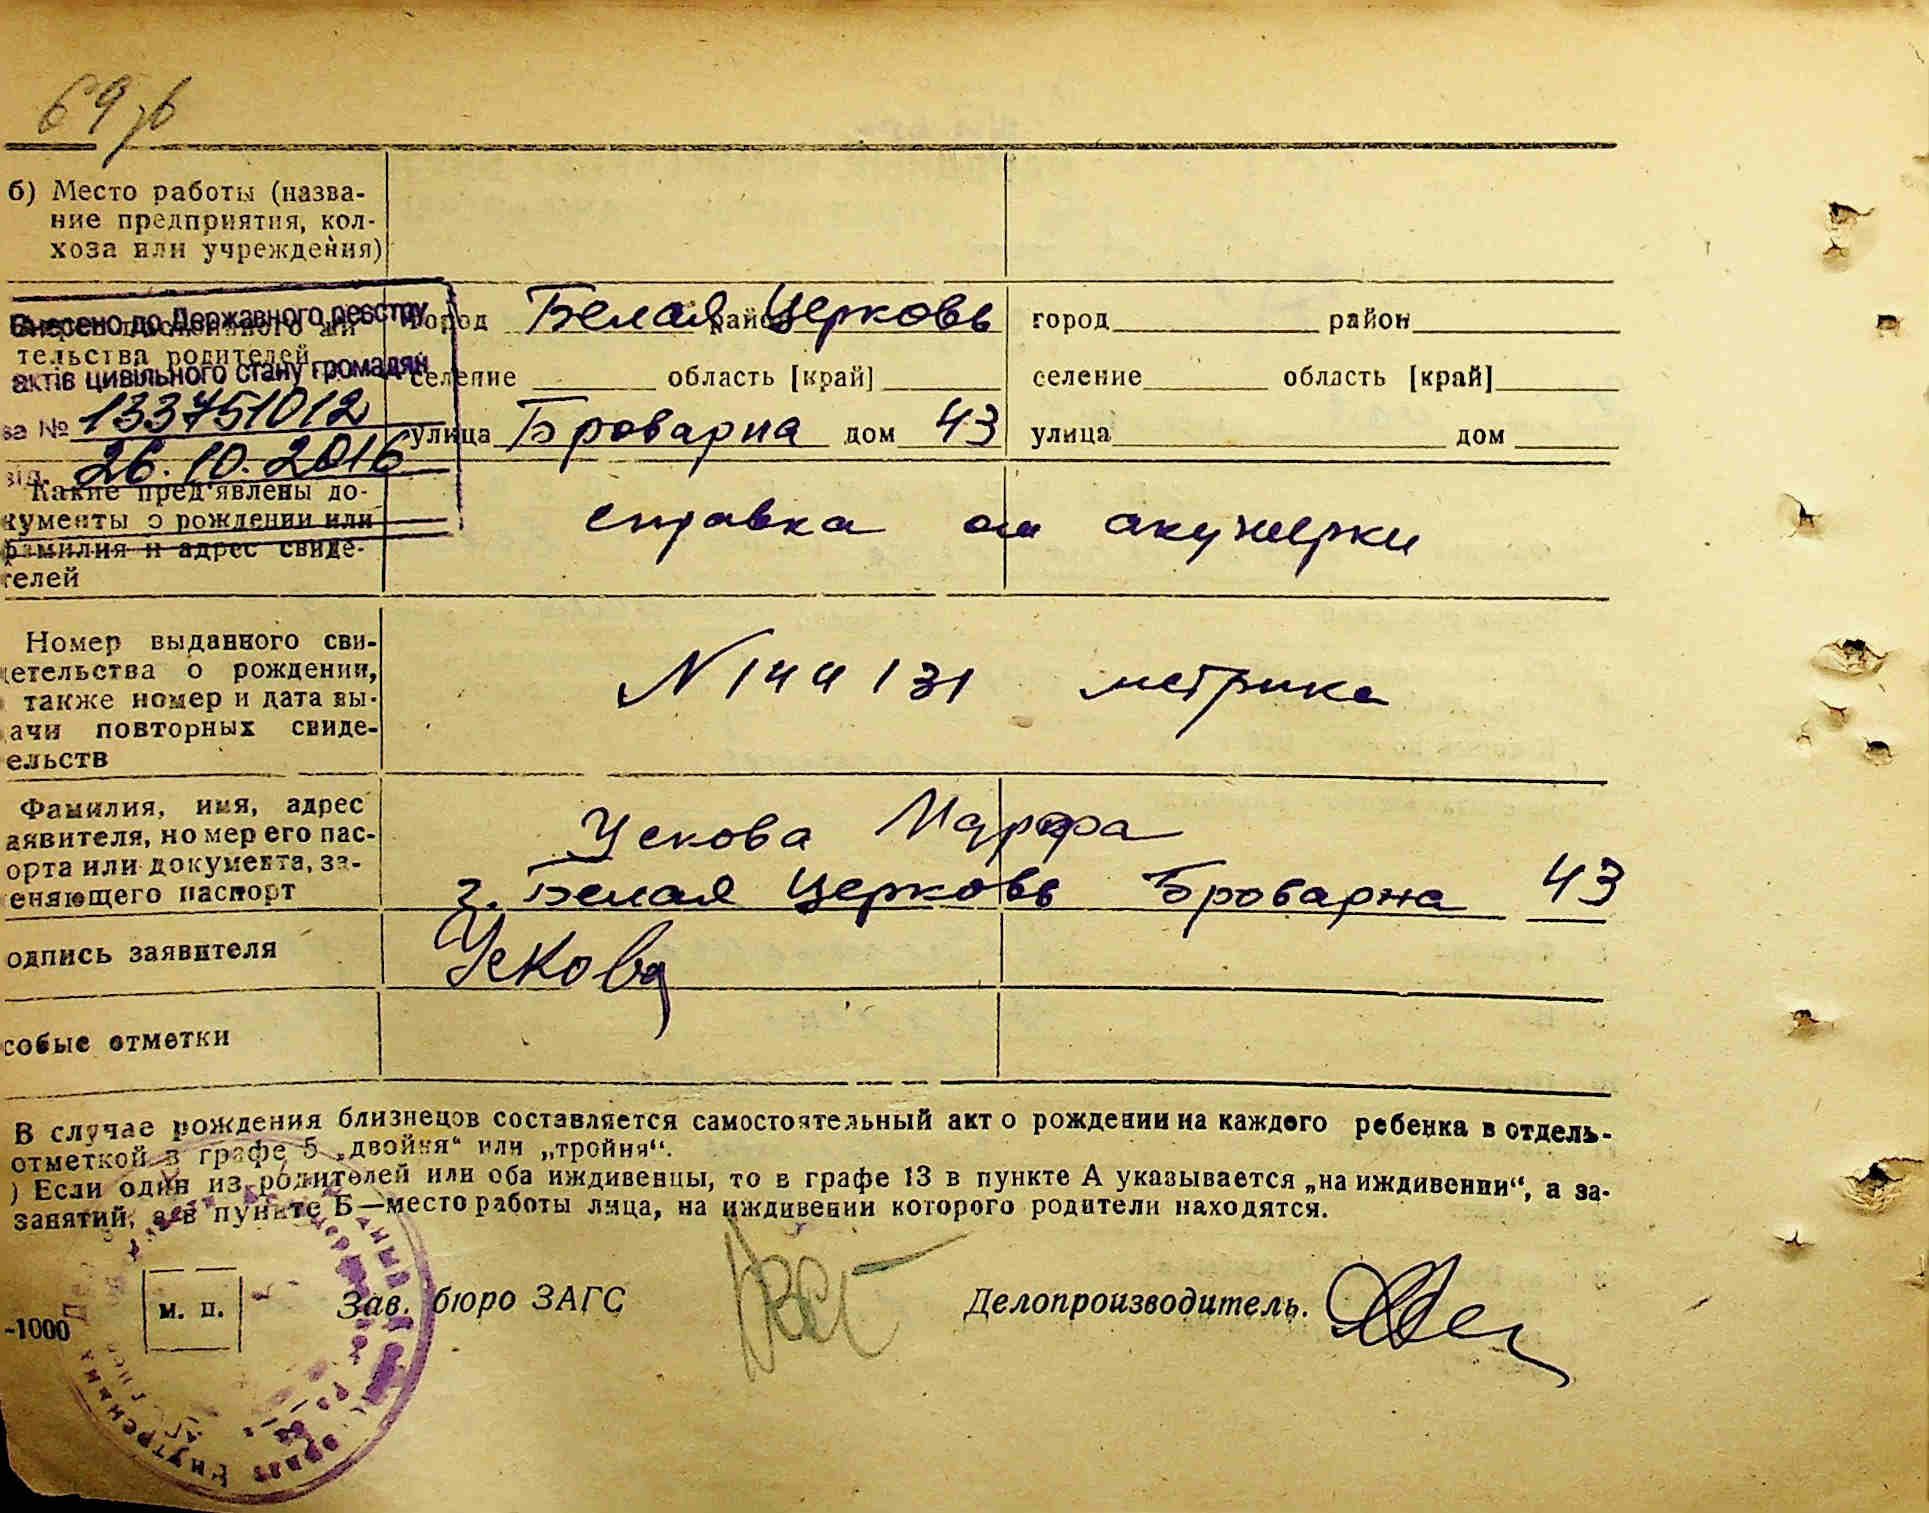 69
б) Место работы (назва-
ние предприятия, кол-
хоза или учреждения)
Внесено до Державного реєстру
тельства родителей
актів цивільного стану громадян
за № 133751012
від. 26.10.2016
город Белая Церковь район
селение область [край]
улица Броварна дом 43
город район
селение область [край]
улица дом
Какие пред'явлены до-
кументы о рождении или
фамилия и адрес свиде-
телей
справка от акушерки
Номер выданного сви-
детельства о рождении,
также номер и дата вы-
ачи повторных свиде-
ельств
N 144131 метрика
Фамилия, имя, адрес
аявителя, номер его пас-
орта или документа, за-
еняющего паспорт
Ускова Марфа
г. Белая Церковь Броварна 43
одпись заявителя
Ускова
собые отметки
В случае рождения близнецов составляется самостоятельный акт о рождении на каждого ребенка в отдель-
отметкой в графе 5 „двойня“ или „тройня“.
) Если один из родителей или оба иждивенцы, то в графе 13 в пункте А указывается „на иждивении“, а за-
занятий, а в пункте Б—место работы лица, на иждивении которого родители находятся.
м. п.
Зав. бюро ЗАГС
Делопроизводитель.
-1000